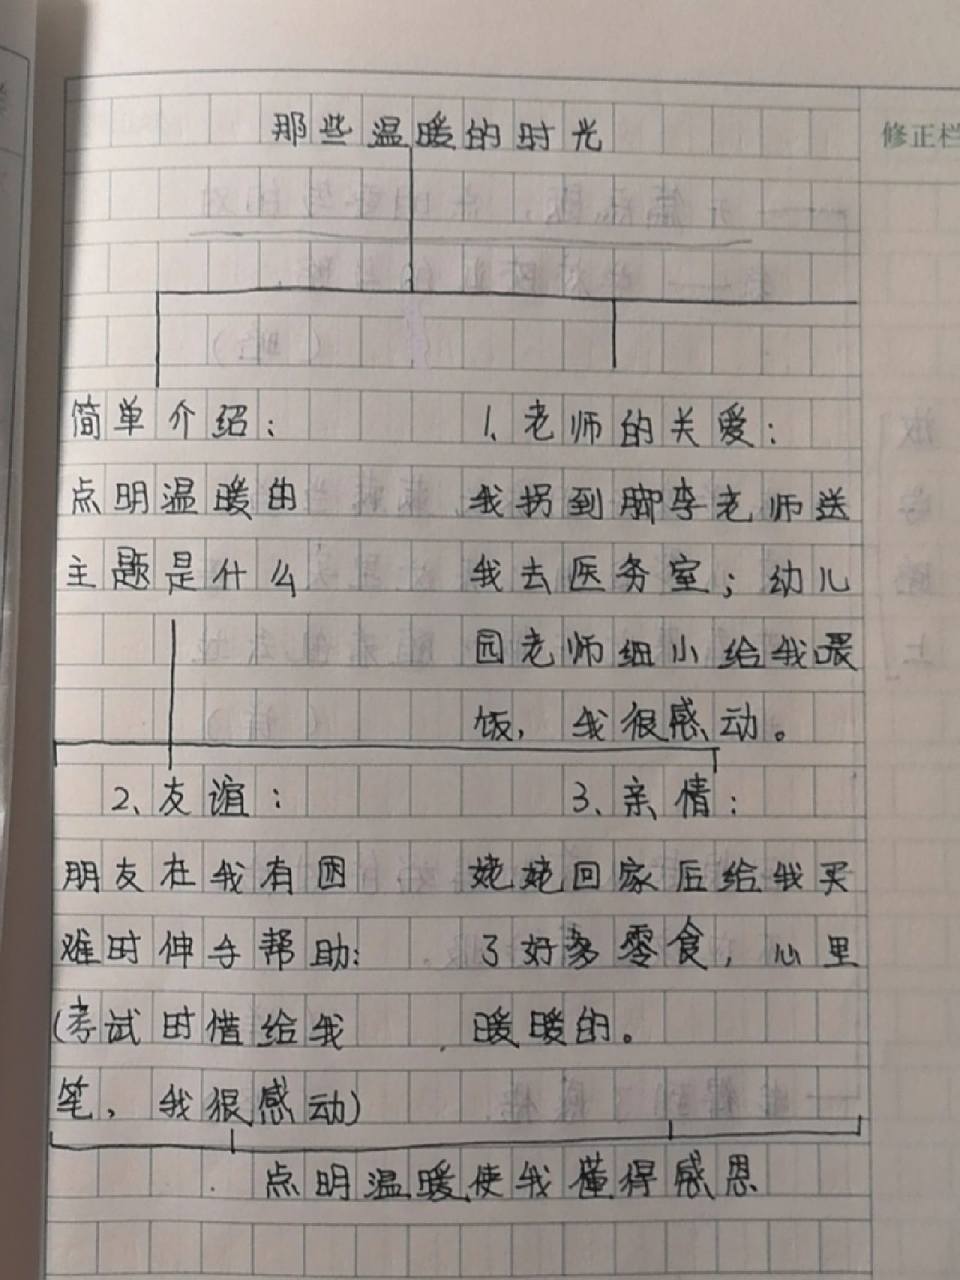 那些温暖的时光
修正栏
简单介绍：
点明温暖的
主题是什么
1、老师的关爱：
我拐到脚李老师送
我去医务室；幼儿
园老师细小给我喂
饭，我很感动。
2、友谊：
朋友在我有困
难时伸手帮助：
(考试时借给我
笔，我很感动)
3、亲情：
姥姥回家后给我买
了好多零食，心里
暖暖的。
点明温暖使我懂得感恩